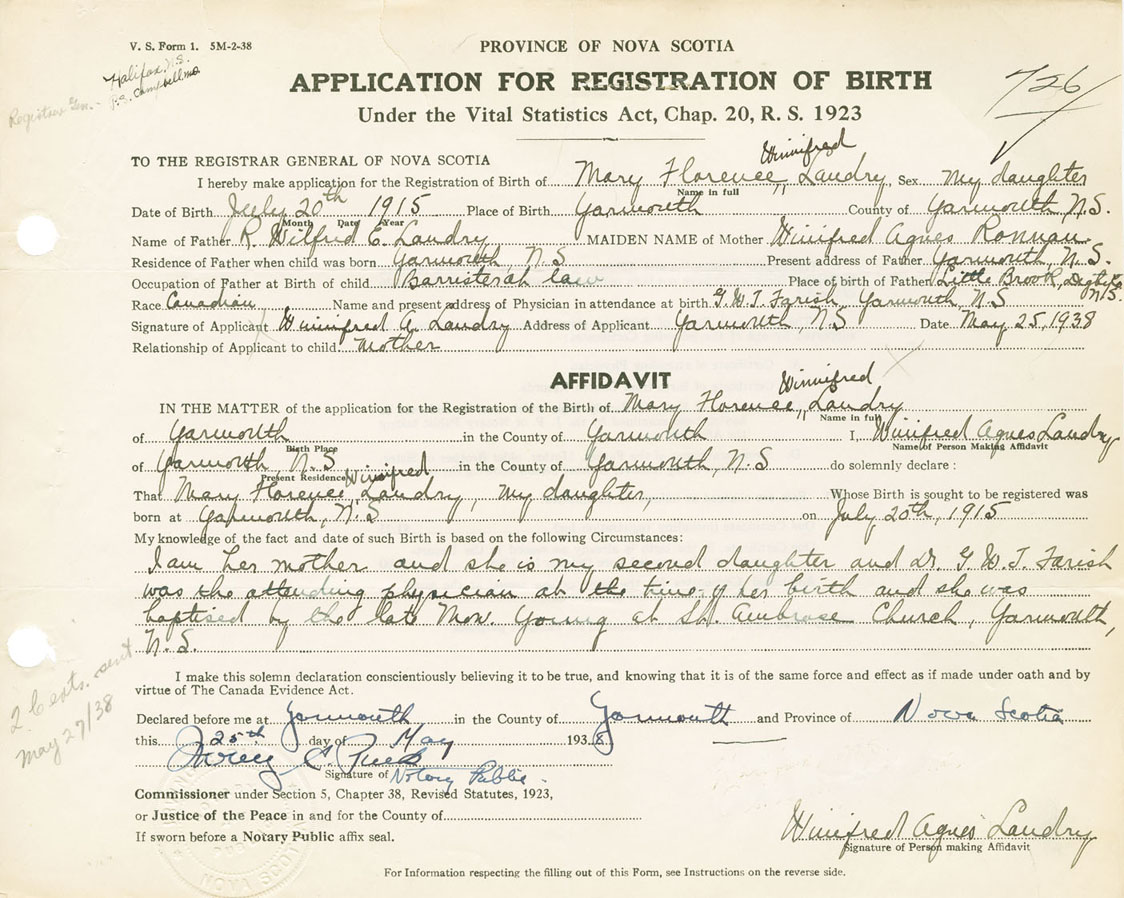 V. S. Form 1. 5M-2-38
Halifax, N.S.
PROVINCE OF NOVA SCOTIA
Registrar Gen.
APPLICATION FOR REGISTRATION OF BIRTH
726
Under the Vital Statistics Act, Chap. 20, R. S. 1923
TO THE REGISTRAR GENERAL OF NOVA SCOTIA
Winnifred
I hereby make application for the Registration of Birth of Mary Florence, Landry, Sex My daughter
Name in full
Date of Birth July 20th 1915 Place of Birth Yarmouth County of Yarmouth N.S.
Month Date Year
Name of Father R. Wilfred E. Landry MAIDEN NAME of Mother Winifred Agnes Ronnan
Residence of Father when child was born Yarmouth, N.S Present address of Father Yarmouth, N.S.
Occupation of Father at Birth of child Barrister at law Place of birth of Father Little Brook, Digby Co N.S.
Race Canadian Name and present address of Physician in attendance at birth G.W.T. Farish, Yarmouth N.S
Signature of Applicant Winnifred A. Landry Address of Applicant Yarmouth, N.S Date May 25, 1938
Relationship of Applicant to child Mother
AFFIDAVIT
Winnifred
IN THE MATTER of the application for the Registration of the Birth of Mary Florence, Landry
Name in full
of Yarmouth in the County of Yarmouth I, Winifred Agnes Landry
Birth Place Name of Person Making Affidavit
of Yarmouth N.S in the County of Yarmouth, N.S do solemnly declare :
Present Residence Winifred
That Mary Florence, Landry, my daughter, Whose Birth is sought to be registered was
born at Yarmouth, N.S on July 20th, 1915
My knowledge of the fact and date of such Birth is based on the following Circumstances:
I am her mother and she is my second daughter and Dr. G.W.T. Farish
was the attending physician at the time of her birth and she was
baptised by the late Mon. Young at St. Ambrose Church, Yarmouth,
N.S.
I make this solemn declaration conscientiously believing it to be true, and knowing that it is of the same force and effect as if made under oath and by
virtue of The Canada Evidence Act.
2 Certs. sent
May 27/38
Declared before me at Yarmouth in the County of Yarmouth and Province of Nova Scotia
this 25th day of May 1938
Signature of Notary Public.
Commissioner under Section 5, Chapter 38, Revised Statutes, 1923,
or Justice of the Peace in and for the County of
If sworn before a Notary Public affix seal.
NOVA SCOTIA
Winifred Agnes Landry
Signature of Person making Affidavit
For Information respecting the filling out of this Form, see Instructions on the reverse side.